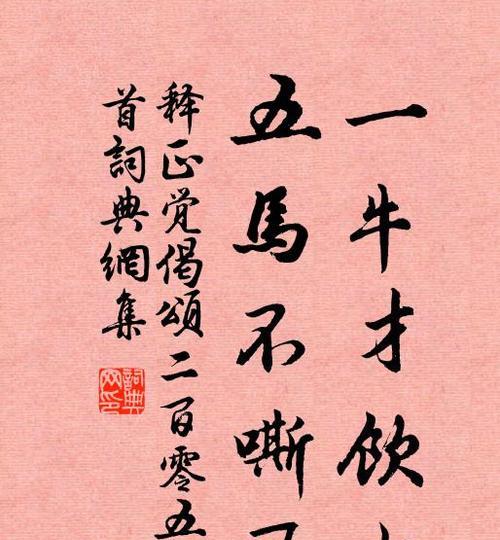 一牛才飲
五馬不嘶
释正觉偈頌二百零五
首詞典網集
詞典网印